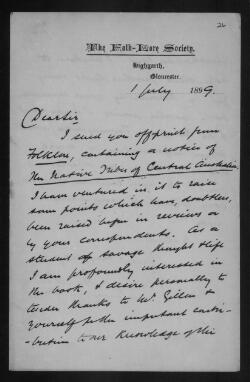 26
The Folk-Lore Society.
Highgarth,
Gloucester.
1 July 1899.
Dear Sir
I send you offprint from
Folklore, containing a notice of
The Native Tribes of Central Australia
I have ventured in it to raise
some points which have, doubtless,
been raised before in reviews or
by your correspondents. As a
student of savage thought & life
I am profoundly interested in
the book, & desire personally to
tender thanks to Mr Gillen &
yourself for the important contri-
bution to our knowledge of the